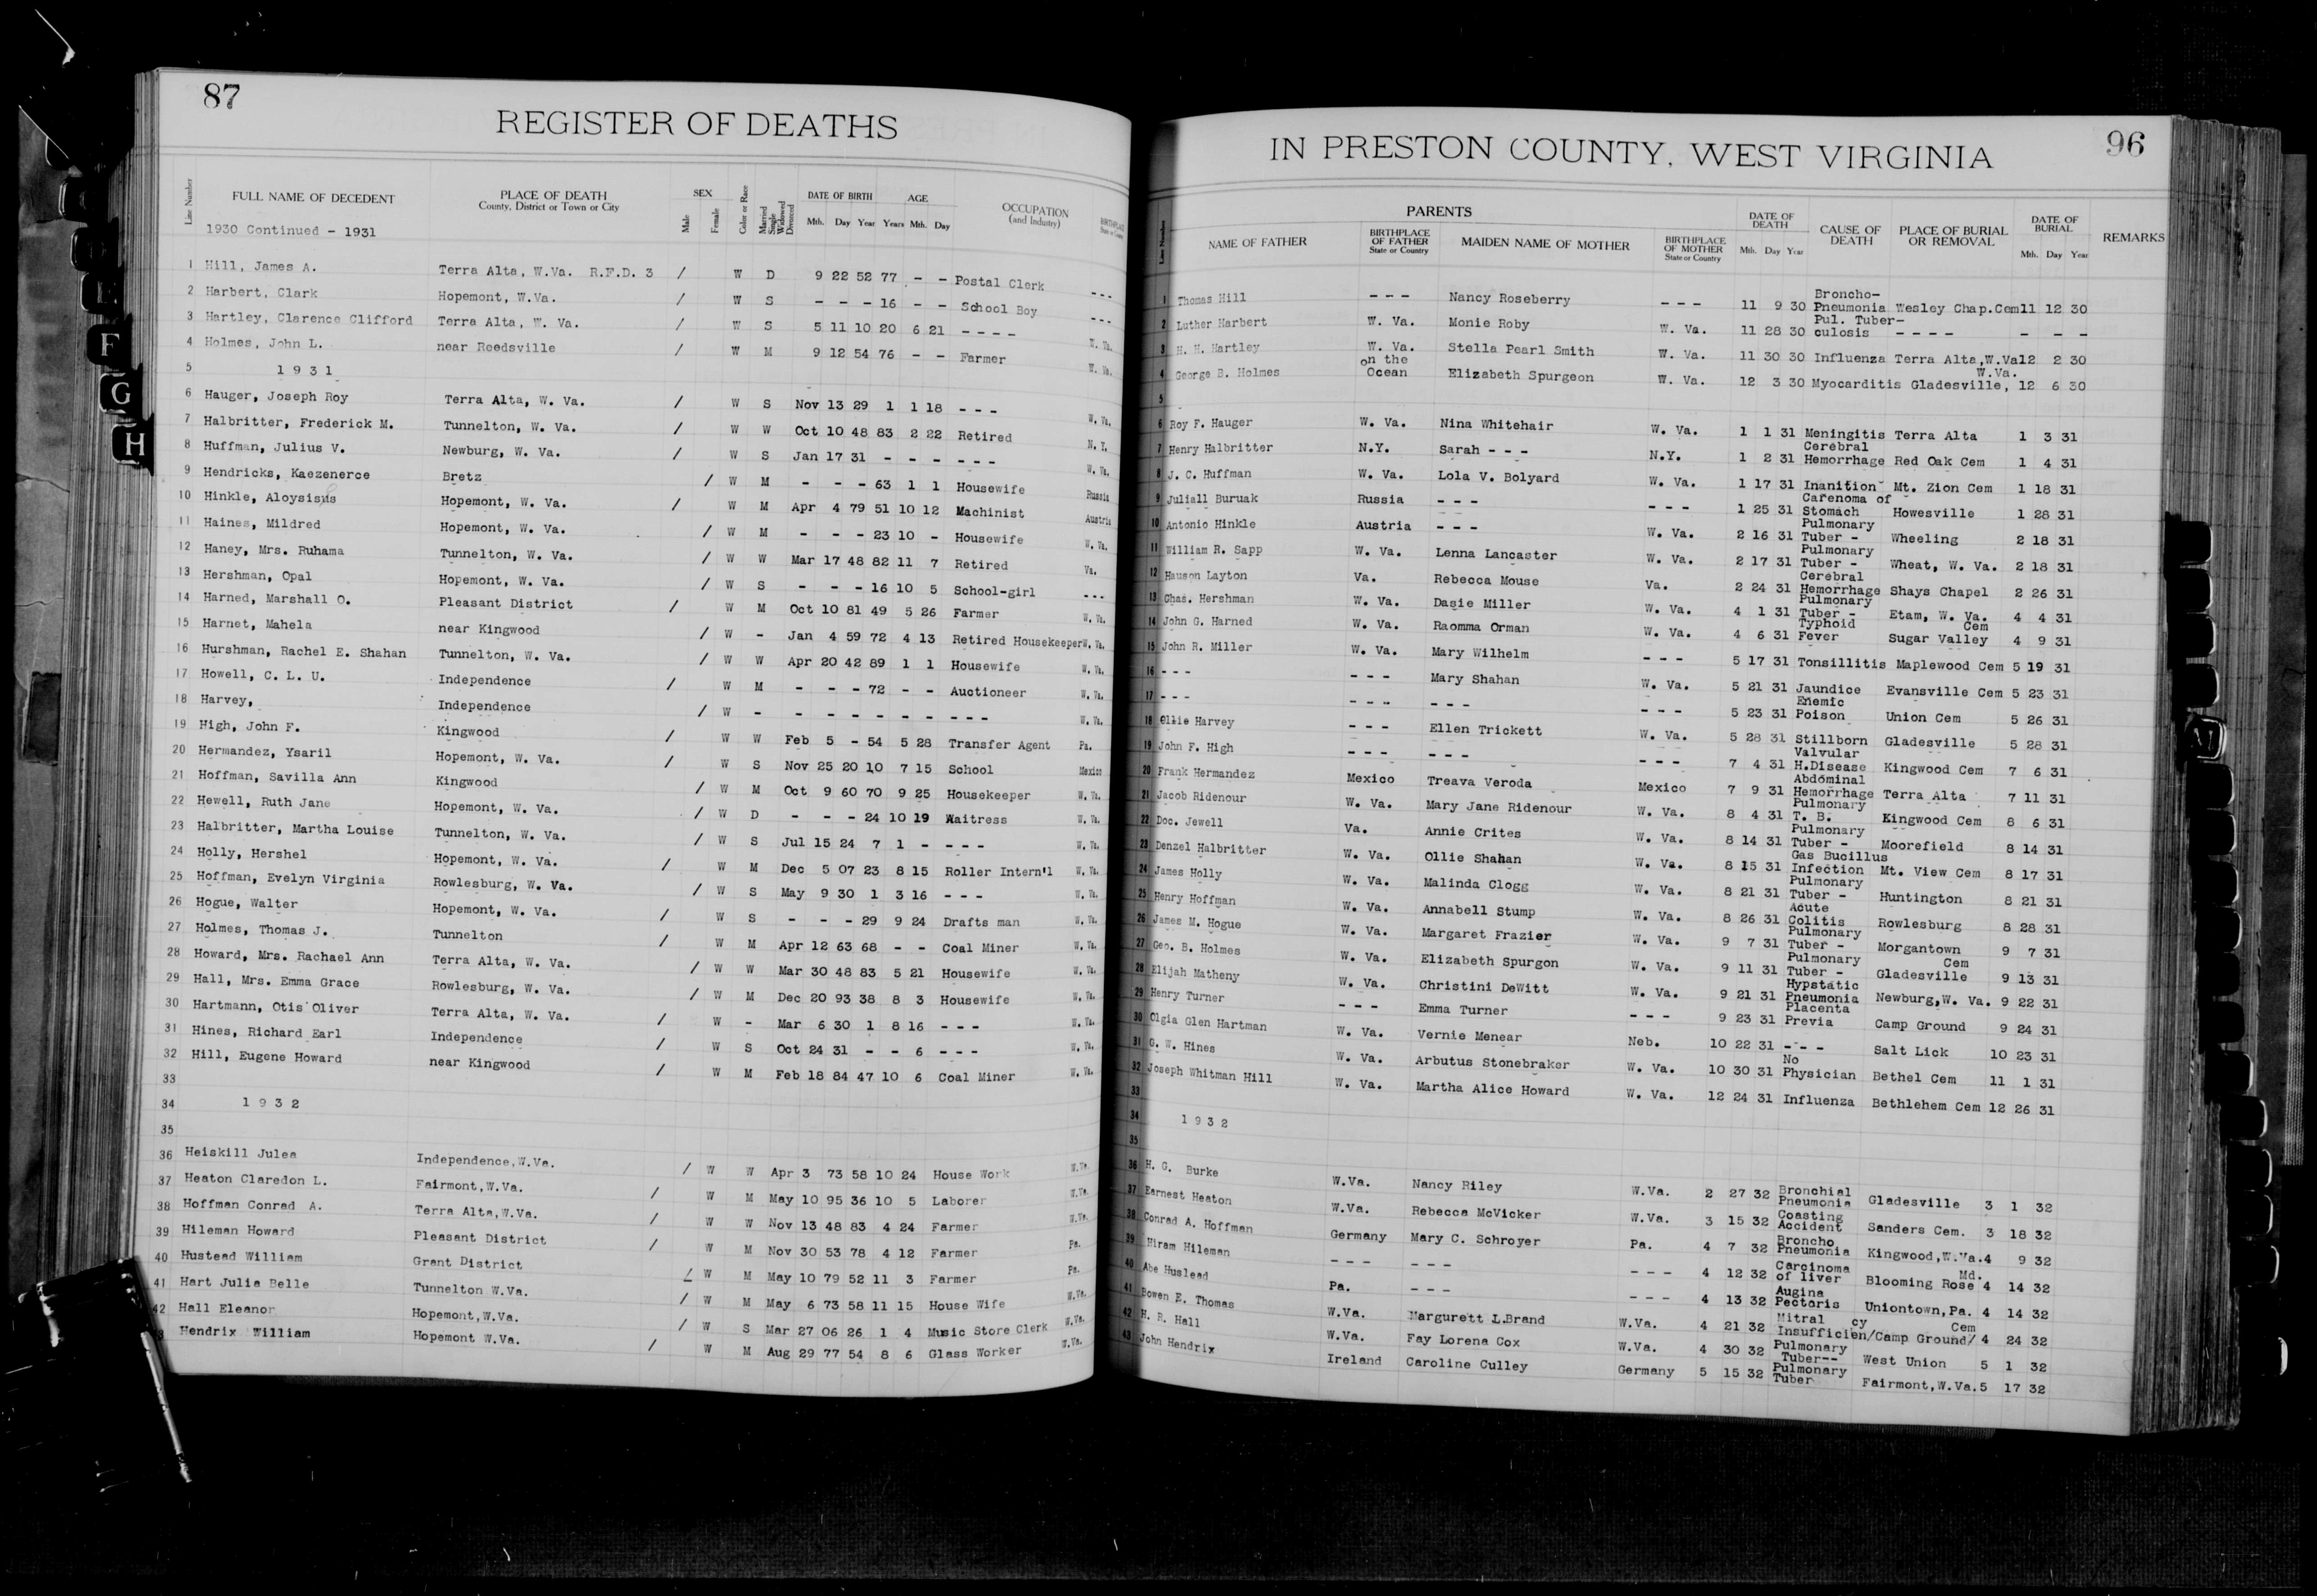 87
REGISTER OF DEATHS
Line Number
FULL NAME OF DECEDENT
PLACE OF DEATH
County, District or Town or City
SEX
Male
Female
Color or Race
Married Single Widowed Divorced
DATE OF BIRTH
Mth. Day Year
AGE
Years Mth. Day
OCCUPATION
(and Industry)
BIRTHPLACE
State or Country
1930 Continued - 1931
1 Hill, James A. Terra Alta, W.Va. R.F.D. 3 / W D 9 22 52 77 - - Postal Clerk - - -
2 Harbert, Clark Hopemont, W.Va. / W S - - - 16 - - School Boy - - -
3 Hartley, Clarence Clifford Terra Alta, W. Va. / W S 5 11 10 20 6 21 - - - - W. Va.
4 Holmes, John L. near Reedsville / W M 9 12 54 76 - - Farmer W. Va.
5 1 9 3 1
6 Hauger, Joseph Roy Terra Alta, W. Va. / W S Nov 13 29 1 1 18 - - - W. Va.
7 Halbritter, Frederick M. Tunnelton, W. Va. / W W Oct 10 48 83 2 22 Retired N. Y.
8 Huffman, Julius V. Newburg, W. Va. / W S Jan 17 31 - - - - - - W. Va.
9 Hendricks, Kaezenerce Bretz / W M - - - 63 1 1 Housewife Russia
10 Hinkle, Aloysisus Hopemont, W. Va. / W M Apr 4 79 51 10 12 Machinist Austria
11 Haines, Mildred Hopemont, W. Va. / W M - - - 23 10 - Housewife W. Va.
12 Haney, Mrs. Ruhama Tunnelton, W. Va. / W W Mar 17 48 82 11 7 Retired Va.
13 Hershman, Opal Hopemont, W. Va. / W S - - - 16 10 5 School-girl - - -
14 Harned, Marshall O. Pleasant District / W M Oct 10 81 49 5 26 Farmer W. Va.
15 Harnet, Mahela near Kingwood / W - Jan 4 59 72 4 13 Retired Housekeeper W. Va.
16 Hurshman, Rachel E. Shahan Tunnelton, W. Va. / W W Apr 20 42 89 1 1 Housewife W. Va.
17 Howell, C. L. U. Independence / W M - - - 72 - - Auctioneer W. Va.
18 Harvey, Independence / W - - - - - - - - - - W. Va.
19 High, John F. Kingwood / W W Feb 5 - 54 5 28 Transfer Agent Pa.
20 Hermandez, Ysaril Hopemont, W. Va. / W S Nov 25 20 10 7 15 School Mexico
21 Hoffman, Savilla Ann Kingwood / W M Oct 9 60 70 9 25 Housekeeper W. Va.
22 Hewell, Ruth Jane Hopemont, W. Va. / W D - - - 24 10 19 Waitress W. Va.
23 Halbritter, Martha Louise Tunnelton, W. Va. / W S Jul 15 24 7 1 - - - - W. Va.
24 Holly, Hershel Hopemont, W. Va. / W M Dec 5 07 23 8 15 Roller Intern'l W. Va.
25 Hoffman, Evelyn Virginia Rowlesburg, W. Va. / W S May 9 30 1 3 16 - - - W. Va.
26 Hogue, Walter Hopemont, W. Va. / W S - - - 29 9 24 Drafts man W. Va.
27 Holmes, Thomas J. Tunnelton / W M Apr 12 63 68 - - Coal Miner W. Va.
28 Howard, Mrs. Rachael Ann Terra Alta, W. Va. / W W Mar 30 48 83 5 21 Housewife W. Va.
29 Hall, Mrs. Emma Grace Rowlesburg, W. Va. / W M Dec 20 93 38 8 3 Housewife W. Va.
30 Hartmann, Otis Oliver Terra Alta, W. Va. / W - Mar 6 30 1 8 16 - - - W. Va.
31 Hines, Richard Earl Independence / W S Oct 24 31 - - 6 - - - W. Va.
32 Hill, Eugene Howard near Kingwood / W M Feb 18 84 47 10 6 Coal Miner W. Va.
33
34 1 9 3 2
35
36 Heiskill Julea Independence,W.Va. / W W Apr 3 73 58 10 24 House Work W.Va.
37 Heaton Claredon L. Fairmont,W.Va. / W M May 10 95 36 10 5 Laborer W.Va.
38 Hoffman Conrad A. Terra Alta,W.Va. / W W Nov 13 48 83 4 24 Farmer W.Va.
39 Hileman Howard Pleasant District / W M Nov 30 53 78 4 12 Farmer Pa.
40 Hustead William Grant District / W M May 10 79 52 11 3 Farmer Pa.
41 Hart Julia Belle Tunnelton W.Va. / W M May 6 73 58 11 15 House Wife W.Va.
42 Hall Eleanor Hopemont,W.Va. / W S Mar 27 06 26 1 4 Music Store Clerk W.Va.
3 Hendrix William Hopemont W.Va. / W M Aug 29 77 54 8 6 Glass Worker W.Va.
F
G
H
96
IN PRESTON COUNTY, WEST VIRGINIA
Line Number
PARENTS
NAME OF FATHER
BIRTHPLACE OF FATHER
State or Country
MAIDEN NAME OF MOTHER
BIRTHPLACE OF MOTHER
State or Country
DATE OF DEATH
Mth. Day Year
CAUSE OF DEATH
PLACE OF BURIAL OR REMOVAL
DATE OF BURIAL
Mth. Day Year
REMARKS
1 Thomas Hill - - - Nancy Roseberry - - - 11 9 30 Broncho-Pneumonia Wesley Chap.Cem 11 12 30
2 Luther Harbert W. Va. Monie Roby W. Va. 11 28 30 Pul. Tuber-culosis - - - - - - -
3 H. H. Hartley W. Va. Stella Pearl Smith W. Va. 11 30 30 Influenza Terra Alta,W.Va 12 2 30
4 George B. Holmes on the Ocean Elizabeth Spurgeon W. Va. 12 3 30 Myocarditis Gladesville, W.Va. 12 6 30
5
6 Roy F. Hauger W. Va. Nina Whitehair W. Va. 1 1 31 Meningitis Terra Alta 1 3 31
7 Henry Halbritter N.Y. Sarah - - - N.Y. 1 2 31 Cerebral Hemorrhage Red Oak Cem 1 4 31
8 J. C. Huffman W. Va. Lola V. Bolyard W. Va. 1 17 31 Inanition Mt. Zion Cem 1 18 31
9 Juliall Buruak Russia - - - - - - 1 25 31 Carenoma of Stomach Howesville 1 28 31
10 Antonio Hinkle Austria - - - W. Va. 2 16 31 Pulmonary Tuber - Wheeling 2 18 31
11 William R. Sapp W. Va. Lenna Lancaster W. Va. 2 17 31 Pulmonary Tuber - Wheat, W. Va. 2 18 31
12 Hauson Layton Va. Rebecca Mouse Va. 2 24 31 Cerebral Hemorrhage Shays Chapel 2 26 31
13 Chas. Hershman W. Va. Dasie Miller W. Va. 4 1 31 Pulmonary Tuber - Etam, W. Va. 4 4 31
14 John G. Harned W. Va. Raomma Orman W. Va. 4 6 31 Typhoid Fever Sugar Valley Cem 4 9 31
15 John R. Miller W. Va. Mary Wilhelm - - - 5 17 31 Tonsillitis Maplewood Cem 5 19 31
16 - - - - - - Mary Shahan W. Va. 5 21 31 Jaundice Evansville Cem 5 23 31
17 - - - - - - - - - - - - 5 23 31 Enemic Poison Union Cem 5 26 31
18 Ollie Harvey - - - Ellen Trickett W. Va. 5 28 31 Stillborn Gladesville 5 28 31
19 John F. High - - - - - - - - - 7 4 31 Valvular H.Disease Kingwood Cem 7 6 31
20 Frank Hermandez Mexico Treava Veroda Mexico 7 9 31 Abdominal Hemorrhage Terra Alta 7 11 31
21 Jacob Ridenour W. Va. Mary Jane Ridenour W. Va. 8 4 31 Pulmonary T. B. Kingwood Cem 8 6 31
22 Doc. Jewell Va. Annie Crites W. Va. 8 14 31 Pulmonary Tuber - Moorefield 8 14 31
23 Denzel Halbritter W. Va. Ollie Shahan W. Va. 8 15 31 Gas Bucillus Infection Mt. View Cem 8 17 31
24 James Holly W. Va. Malinda Clogg W. Va. 8 21 31 Pulmonary Tuber - Huntington 8 21 31
25 Henry Hoffman W. Va. Annabell Stump W. Va. 8 26 31 Acute Colitis Rowlesburg 8 28 31
26 James M. Hogue W. Va. Margaret Frazier W. Va. 9 7 31 Pulmonary Tuber - Morgantown 9 7 31
27 Geo. B. Holmes W. Va. Elizabeth Spurgon W. Va. 9 11 31 Pulmonary Tuber - Gladesville Cem 9 13 31
28 Elijah Matheny W. Va. Christini DeWitt W. Va. 9 21 31 Hypstatic Pneumonia Newburg,W. Va. 9 22 31
29 Henry Turner - - - Emma Turner - - - 9 23 31 Placenta Previa Camp Ground 9 24 31
30 Olgia Glen Hartman W. Va. Vernie Menear Neb. 10 22 31 - - - Salt Lick 10 23 31
31 G. W. Hines W. Va. Arbutus Stonebraker W. Va. 10 30 31 No Physician Bethel Cem 11 1 31
32 Joseph Whitman Hill W. Va. Martha Alice Howard W. Va. 12 24 31 Influenza Bethlehem Cem 12 26 31
33
34 1 9 3 2
35
36 H. G. Burke W.Va. Nancy Riley W.Va. 2 27 32 Bronchial Pneumonia Gladesville 3 1 32
37 Earnest Heaton W.Va. Rebecca McVicker W.Va. 3 15 32 Coasting Accident Sanders Cem. 3 18 32
38 Conrad A. Hoffman Germany Mary C. Schroyer Pa. 4 7 32 Broncho Pneumonia Kingwood,W.Va. 4 9 32
39 Hiram Hileman - - - - - - - - - 4 12 32 Carcinoma of liver Blooming Rose Md. 4 14 32
40 Abe Huslead Pa. - - - - - - 4 13 32 Augina Pectoris Uniontown,Pa. 4 14 32
41 Bowen E. Thomas W.Va. Margurett L.Brand W.Va. 4 21 32 Mitral Insufficien/cy Camp Ground/ Cem 4 24 32
42 H. R. Hall W.Va. Fay Lorena Cox W.Va. 4 30 32 Pulmonary Tuber-- West Union 5 1 32
43 John Hendrix Ireland Caroline Culley Germany 5 15 32 Pulmonary Tuber Fairmont,W.Va. 5 17 32